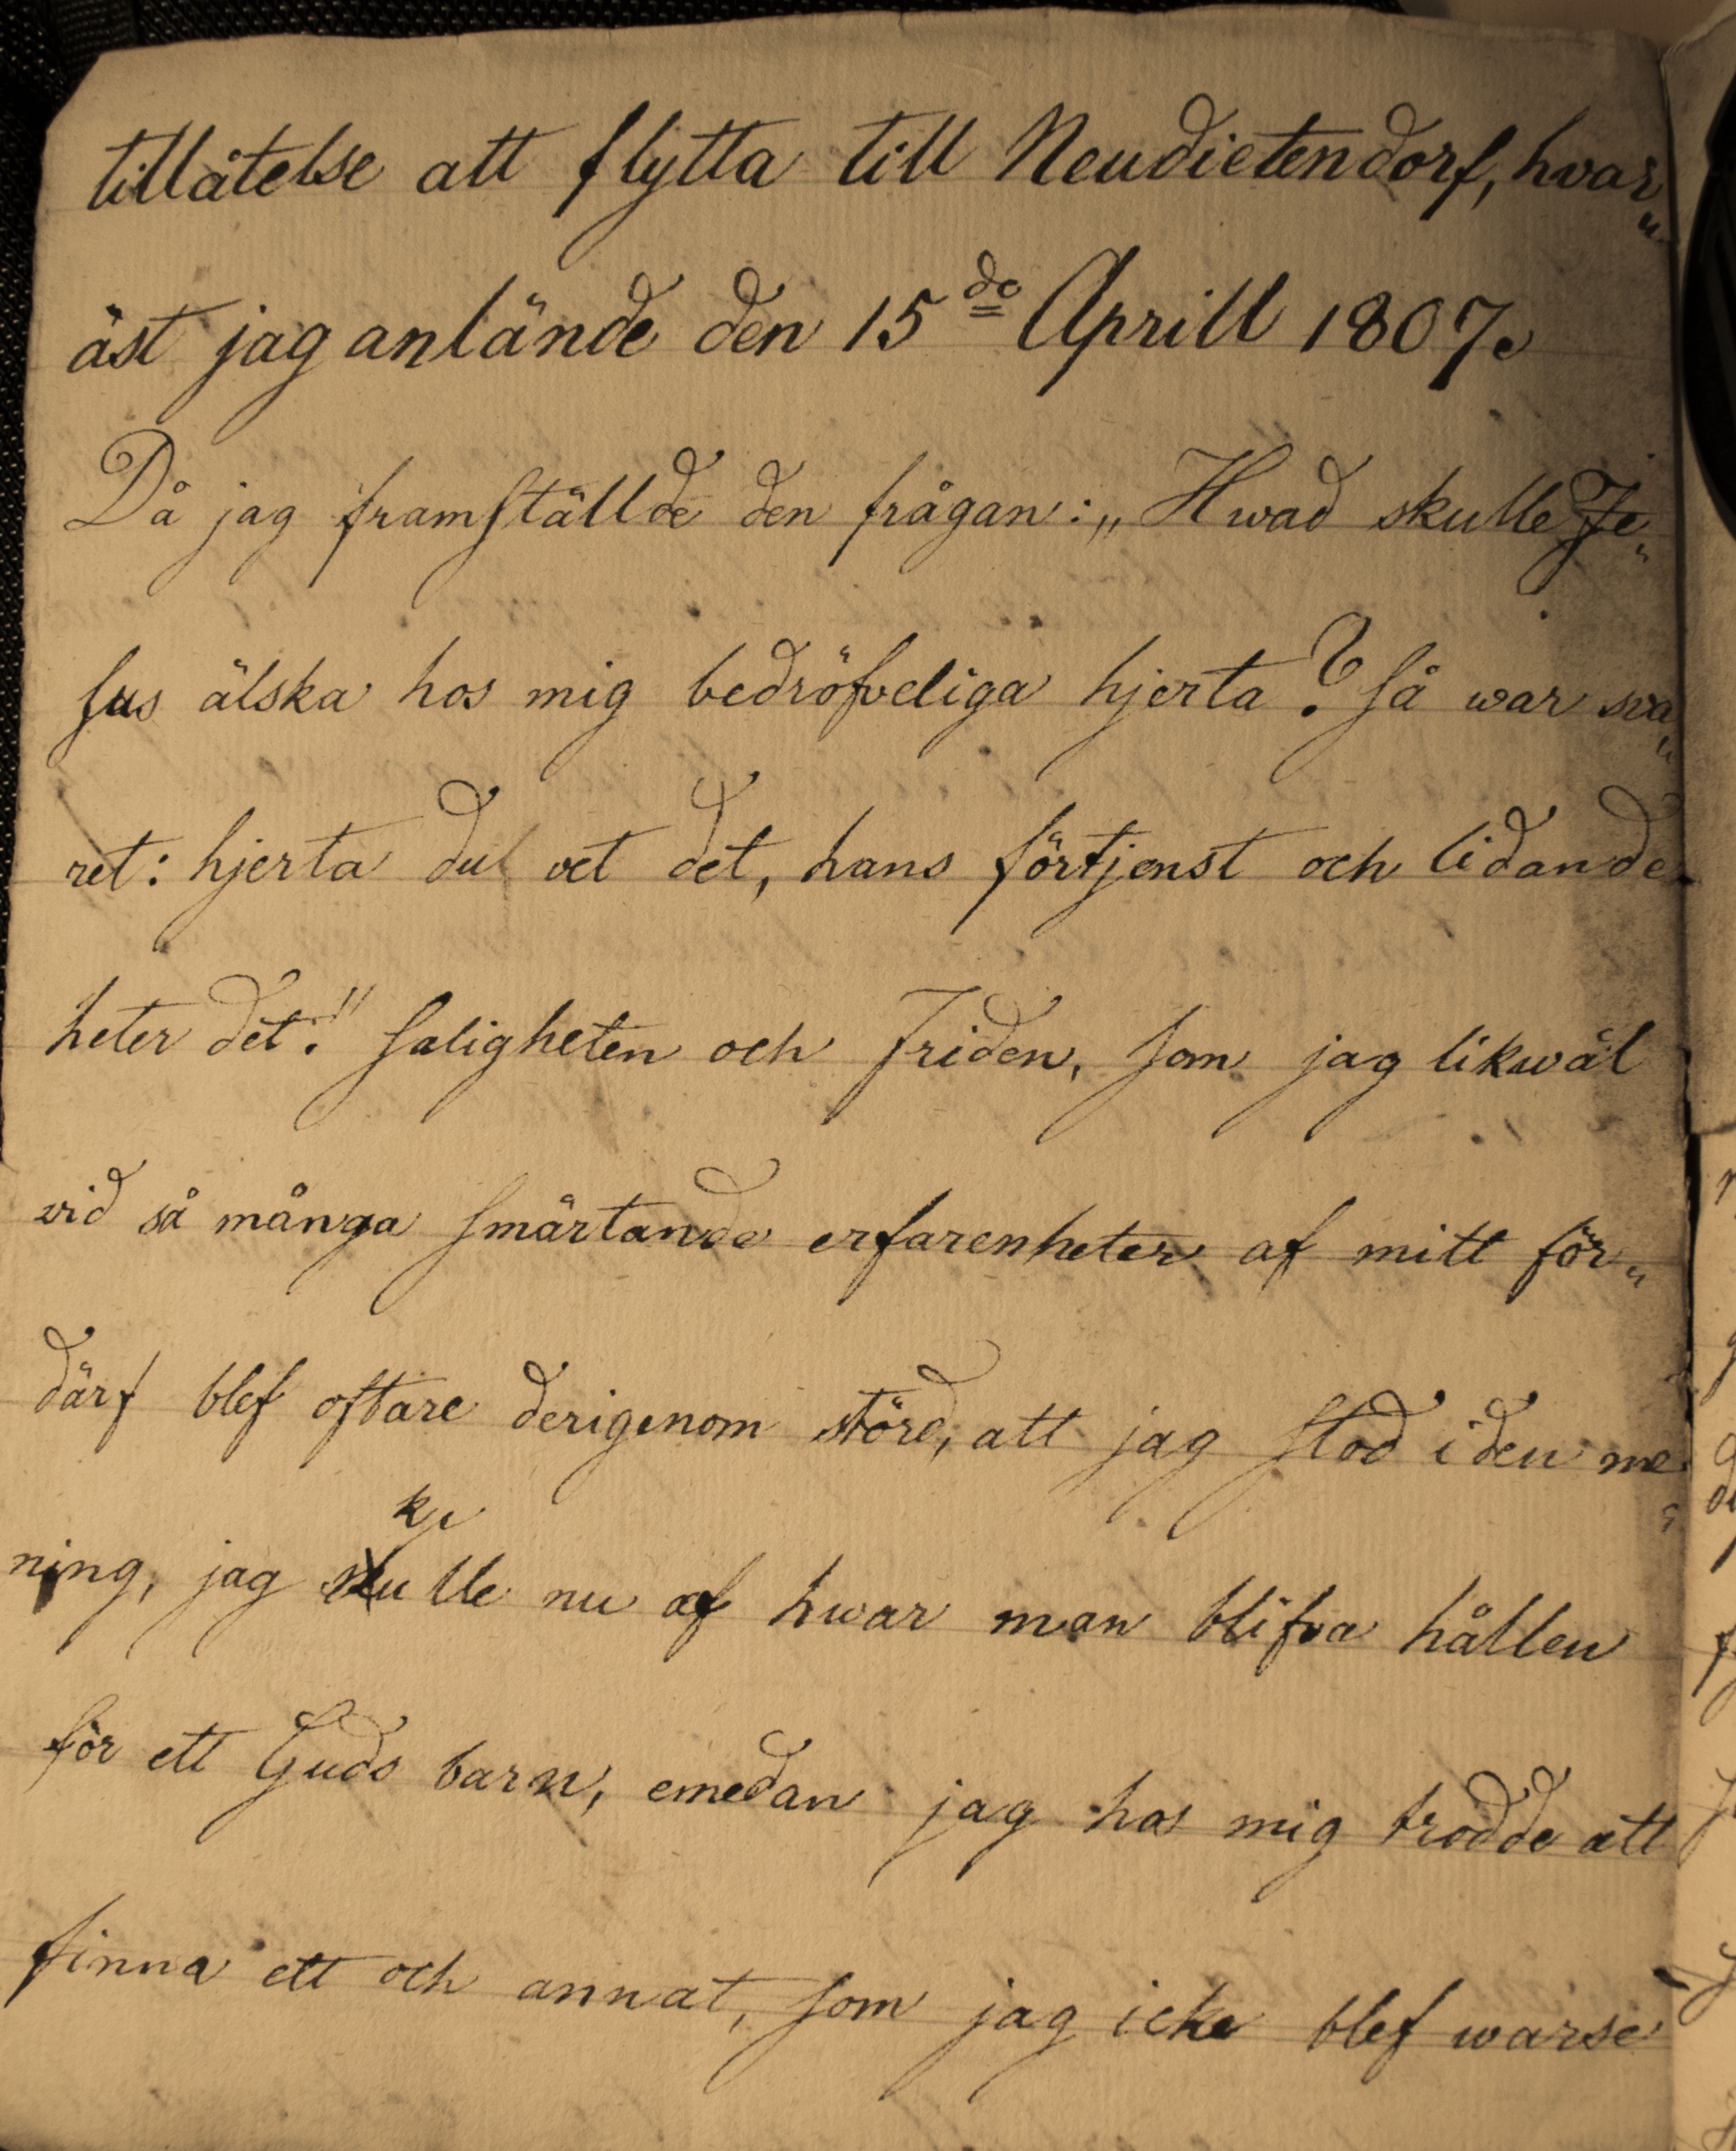 tillåtelse att flytta till Neudietendorf, hvar„
äst jag anlände den 15de Aprill 1807.
Då jag framställde den frågan: „Hwad skulle Je„
sus älska hos mig bedröfveliga hjerta? så war sva„
ret: hjerta du vet det, hans förtjenst och lidande
heter det!" Saligheten och Friden, som jag likwäl
wid så många smärtande erfarenheter af mitt för„
därf blef oftare derigenom störd, att jag stod i den me„
ning, jag skulle nu af hwar man blifva hållen
för ett Guds barn, emedan jag hos mig trodde att
finna ett och annat, som jag icke blef warse